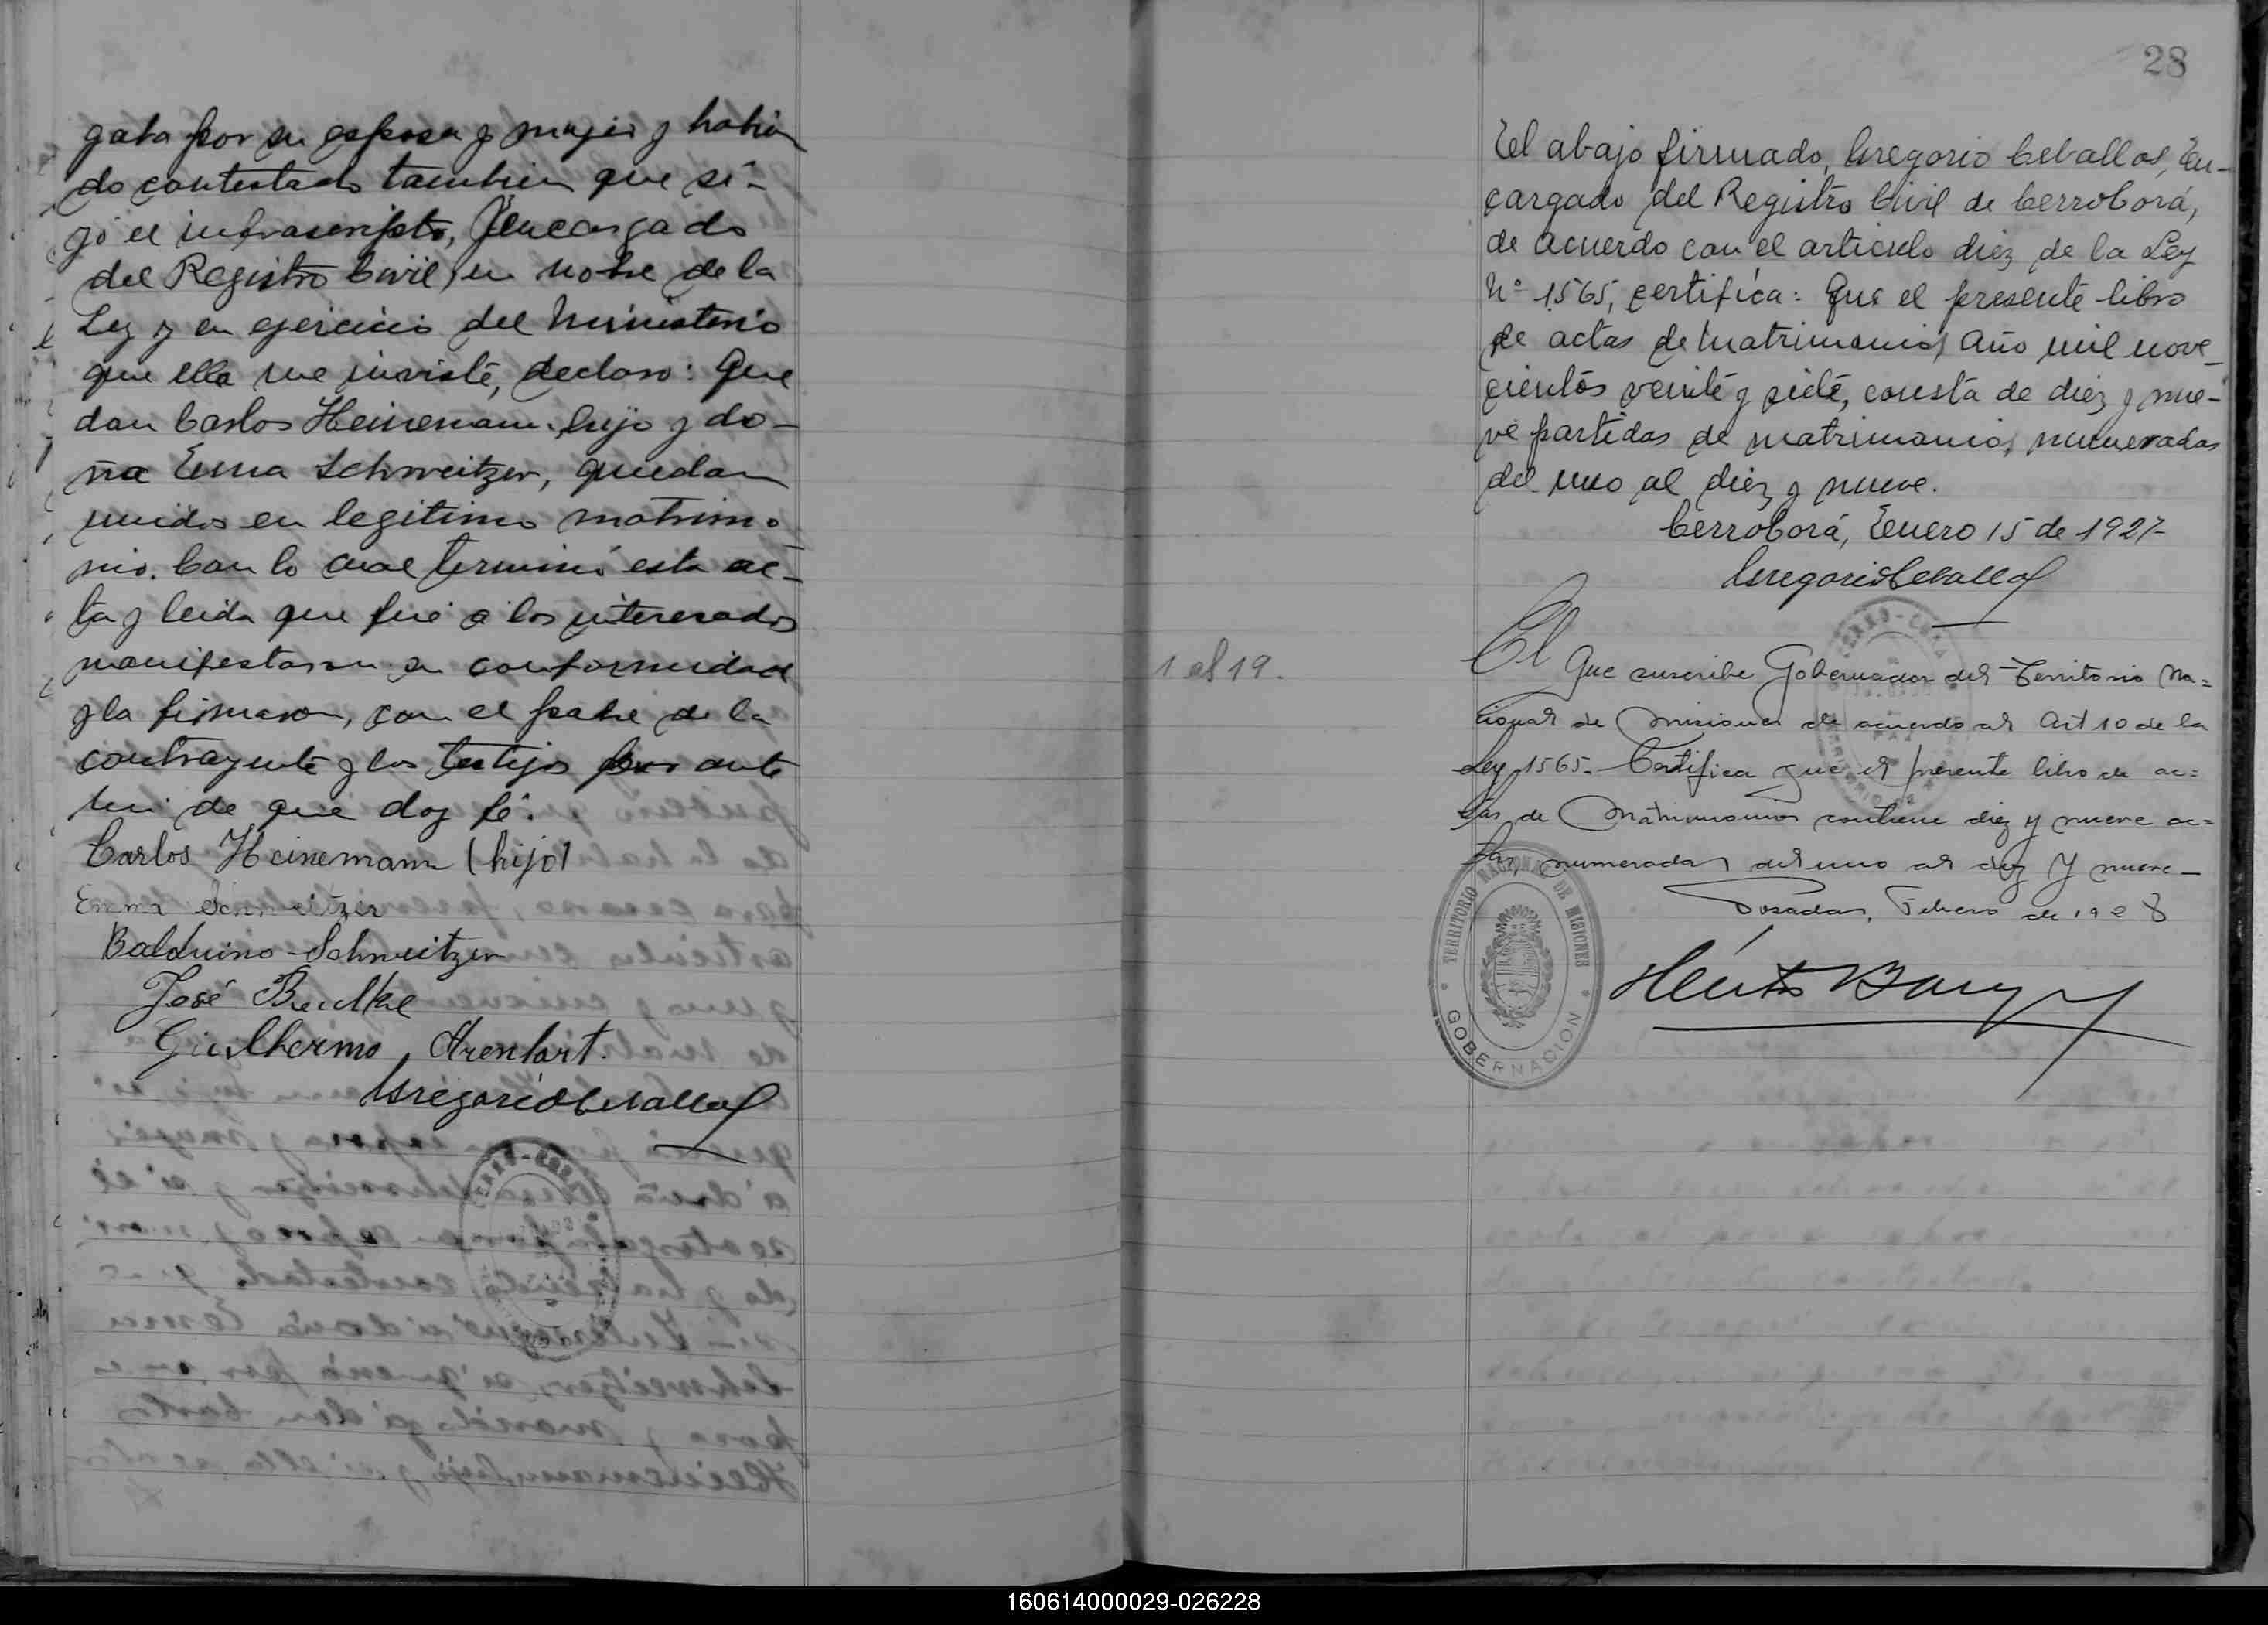 gaba por su esposa y mujer y habien
do contestado tambien que si-
yó el infrascripto, Encargado
del Registro Civil, en nobre de la
Ley y en ejercicio del Ministerio
que ella me inviste, declaro: Que
don Carlos Heinemann hijo y do-
ña Erna Schweitzer, quedan
unidos en legitimo matrimo
nio. Con lo cual terminó esta ac-
ta y leida que fué a los interesados
manifestaron su conformidad
y la firmaron, con el padre de la
contrayente y los testigos por ante
mi de que doy fé.
Carlos Heinemann (hijo)
Emma Schweitzer
Balduino Schweitzer
José
Guilhermo Arenhart.
Gregorio Ceballos
28
El abajo firmado, Gregorio Ceballos, En-
cargado del Registro Civil de Cerrocorá,
de acuerdo con el articulo diez de la Ley
Nº 1565, certifica: Que el presente libro
de actas de Matrimonios año mil nove-
cientos veinte y siete, consta de diez y nue-
ve partidas de matrimonios, numeradas
del uno al diez y nueve.
Cerrocorá, Enero 15 de 1927
Gregorio Ceballos
1 al 19.
El que suscribe Gobernador del Territorio Na=
cional de Misiones de acuerdo al Art 10 de la
Ley 1565. Certifica que el presente libro de ac=
tas de Matrimonios contiene diez y nueve ac=
tas, numeradas del uno al diez y nueve-
Posadas, Febrero de 1928
TERRITORIO NACIONAL DE MISIONES
GOBERNACION
160614000029-026228